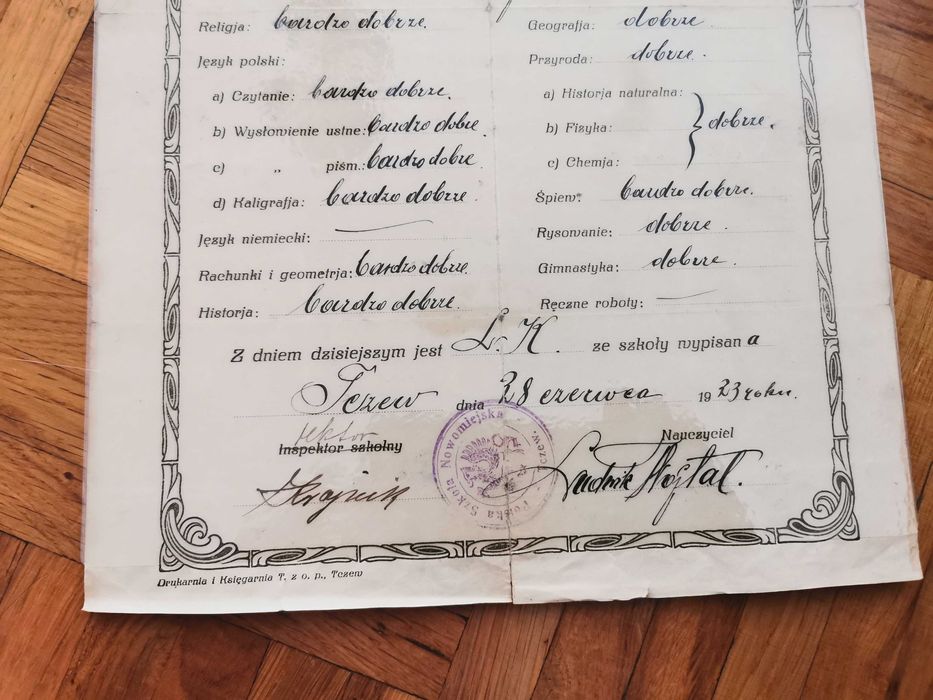 Religja: bardzo dobrze.
Język polski:
a) Czytanie: bardzo dobrze.
b) Wysłowienie ustne: bardzo dobre.
c) „ piśm.: bardzo dobre
d) Kaligrafja: bardzo dobrze.
Język niemiecki: —
Rachunki i geometrja: bardzo dobrze.
Historja: bardzo dobrze.
Geografja: dobrze.
Przyroda: dobrze.
a) Historja naturalna:
b) Fizyka: dobrze.
c) Chemja:
Śpiew: bardzo dobrze.
Rysowanie: dobrze.
Gimnastyka: dobrze.
Ręczne roboty: —
Z dniem dzisiejszym jest L. K. ze szkoły wypisana
Tczew dnia 28 czerwca 1923 roku.
rektor
Inspektor szkolny
Nauczyciel
Polska Szkoła Nowomiejska Tczew.
Drukarnia i Księgarnia T. z o. p., Tczew